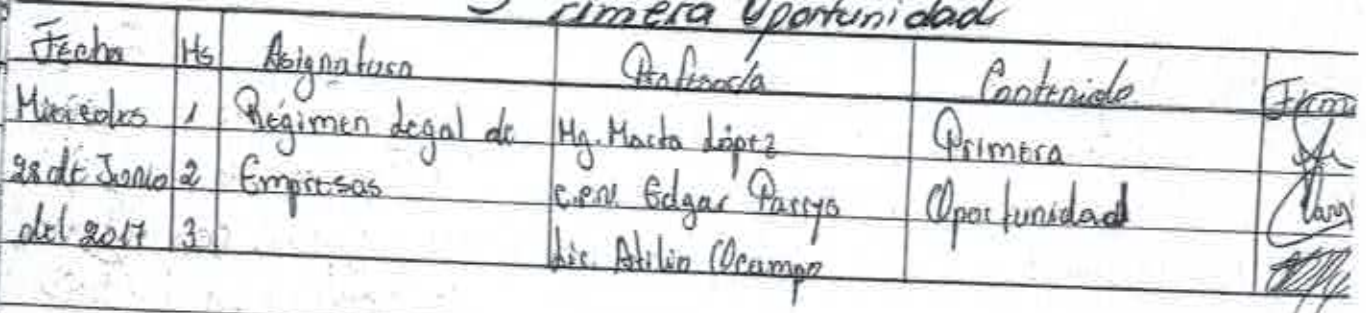 Primera Oportunidad
Fecha Hs Asignatura Profesor/a Contenido Firm
Miércoles 1 Régimen Legal de Mg. Marta López Primera
28 de Junio 2 Empresas C.P.N. Edgar Parryo Oportunidad
del 2017 3 Lic. Atilio Ocampo